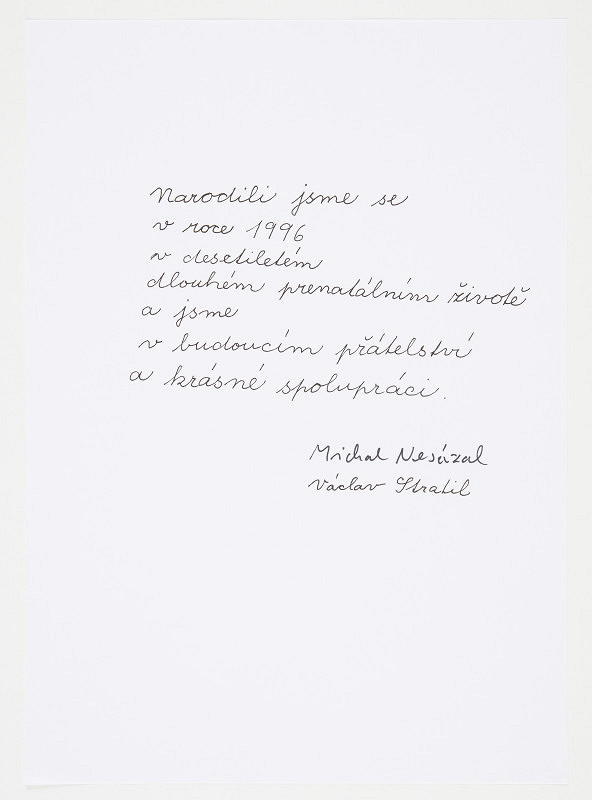 Narodili jsme se
v roce 1996
v desetiletém
dlouhém prenatálním životě
a jsme
v budoucím přátelství
a krásné spolupráci.
Michal Nesázal
Václav Stratil